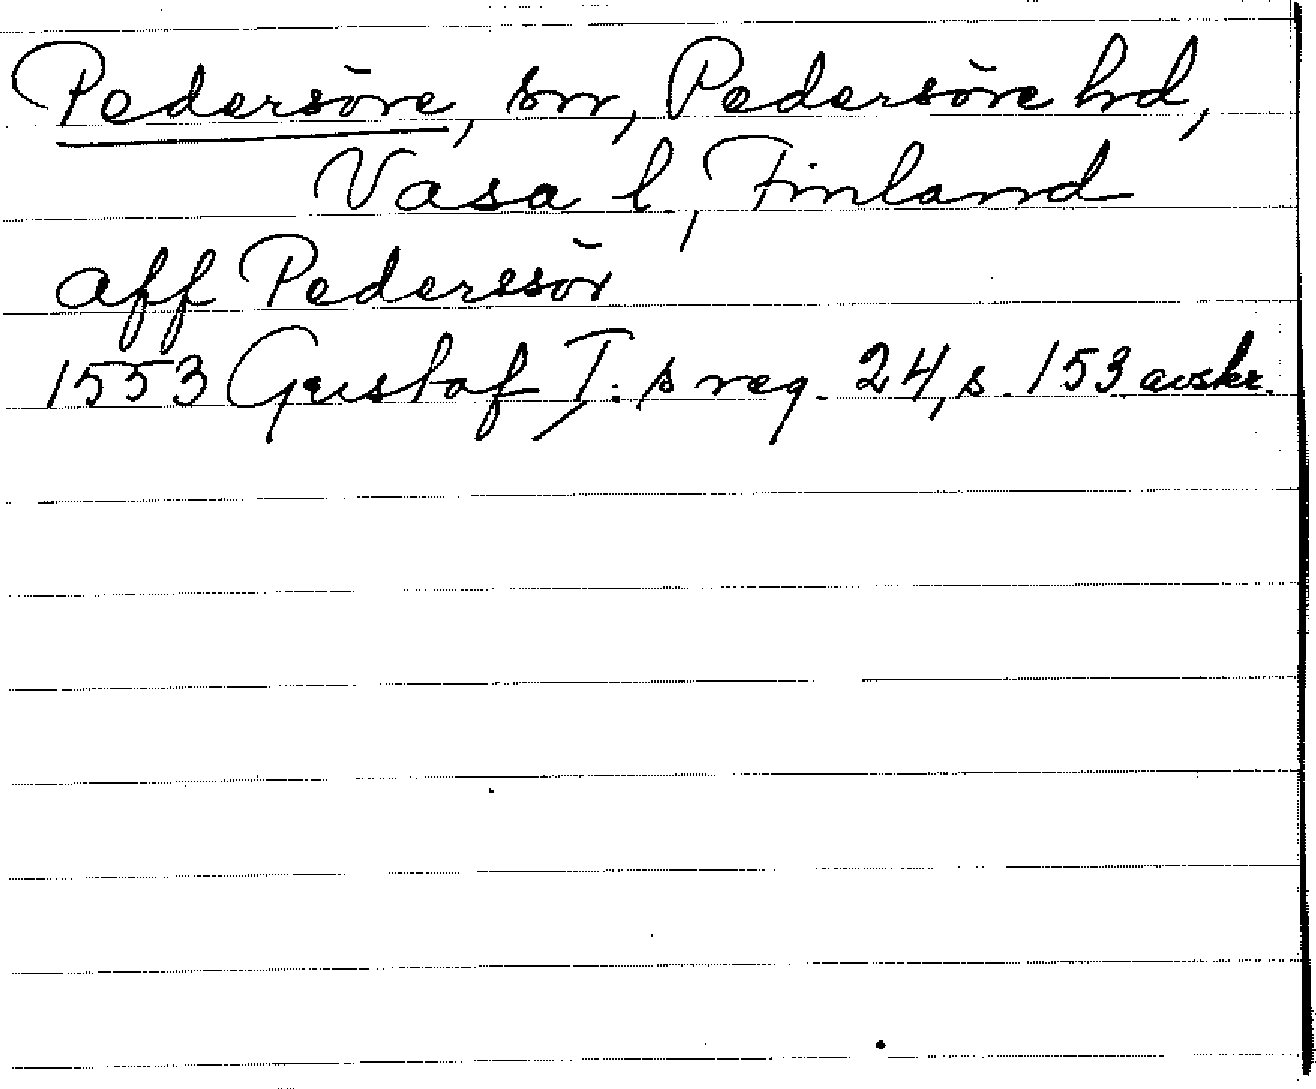 Pedersöre, sn, Pedersöre hd,
Vasa l, Finland
aff Pederssör
1553 Gustaf I:s reg. 24, s. 153 avskr.